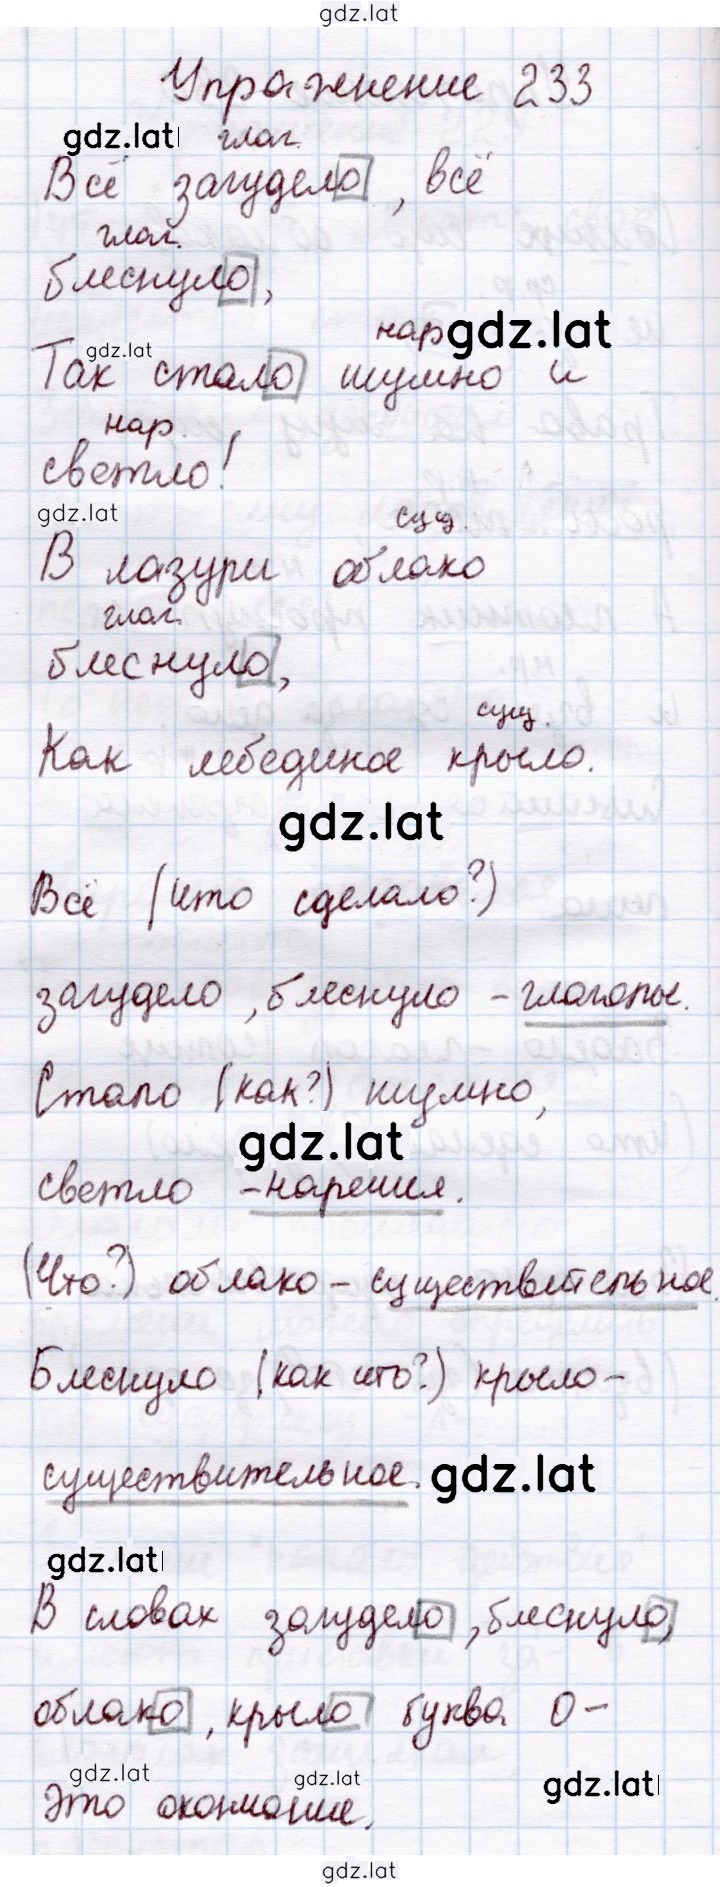 gdz.lat
Упражнение 233
gdz.lat глаг.
Всё загудело, всё
глаг.
блеснуло,
нар gdz.lat
Так gdz.lat стало шумно и
нар.
светло!
gdz.lat сущ.
В лазури облако
глаг.
блеснуло,
сущ.
Как лебединое крыло.
gdz.lat
Всё (что сделало?)
загудело, блеснуло - глаголы.
Стало (как?) шумно,
gdz.lat
светло - наречия.
(Что?) облако - существительное.
Блеснуло (как что?) крыло -
существительное. gdz.lat
gdz.lat
В словах загудело, блеснуло,
облако, крыло буква о -
gdz.lat gdz.lat gdz.lat
это окончание.
gdz.lat